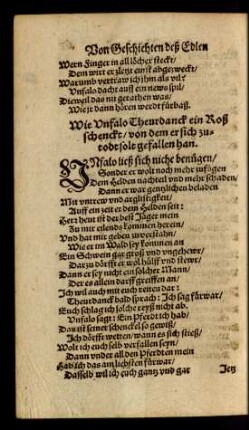 Von Geschichten deß Edlen
Wern Finger in all löcher steckt/
Dem wirt er zletzt einst abgezweckt/
Warumb vertraw ich jhm als vil?
Vnfalo dacht auff ein news spil/
Dieweil das nit gerathen was/
Wie jr dann hören werdt fürbaß.
Wie Vnfalo Theurdanck ein Roß
schenckt/ von dem er sich zu-
todt solt gefallen han.
VNfalo ließ sich nicht benügen/
Sonder er wolt noch mehr zufügen
Dem Helden nachteil vnd mehr schaden/
Dann er war gentzlichen beladen
Mit vntrew vnd arglistigkeit/
Auff ein zeit er dem Helden seit:
Herr heut ist der best Jäger mein
Zu mir eilends kommen herein/
Vnd hat mir geben zuverstahn/
Wie er im Wald sey kommen an
Ein Schwein gar groß vnd vngehewr/
Dar zu dörfft er wol hülff vnd stewr/
Dann er sey nicht ein solcher Mann/
Der es allein darff greiffen an/
Ich wil auch mit euch reiten dar:
Theurdanck bald sprach: Ich sag fürwar/
Euch schlag ich solche reyß nicht ab.
Vnfalo sagt: Ein Pferdt ich hab/
Das ist seiner schenckel so gewiß/
Ich dörfft wetten/ wann es sich stieß/
Wolt ich euch solch verfallen seyn/
Dann vnder all den Pferdten mein
Hab ich das am liebsten fürwar/
Dasselb wil ich euch gantz vnd gar
Jetz